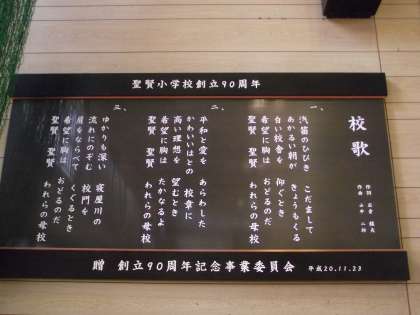 聖賢小学校創立90周年
校歌
一、
汽笛のひびき こだまして
あかるい朝が きょうもくる
白い校舎を 仰ぐとき
希望に胸は おどるのだ
聖賢 聖賢 われらの母校
二、
平和と愛を あらわした
かわいいはとの 校章に
高い理想を 望むとき
希望に胸は たかなるよ
聖賢 聖賢 われらの母校
三、
ゆかりも深い 寝屋川の
流れにのぞむ 校門を
肩をならべて くぐるとき
希望に胸は おどるのだ
聖賢 聖賢 われらの母校
贈 創立90周年記念事業委員会 平成20.11.23